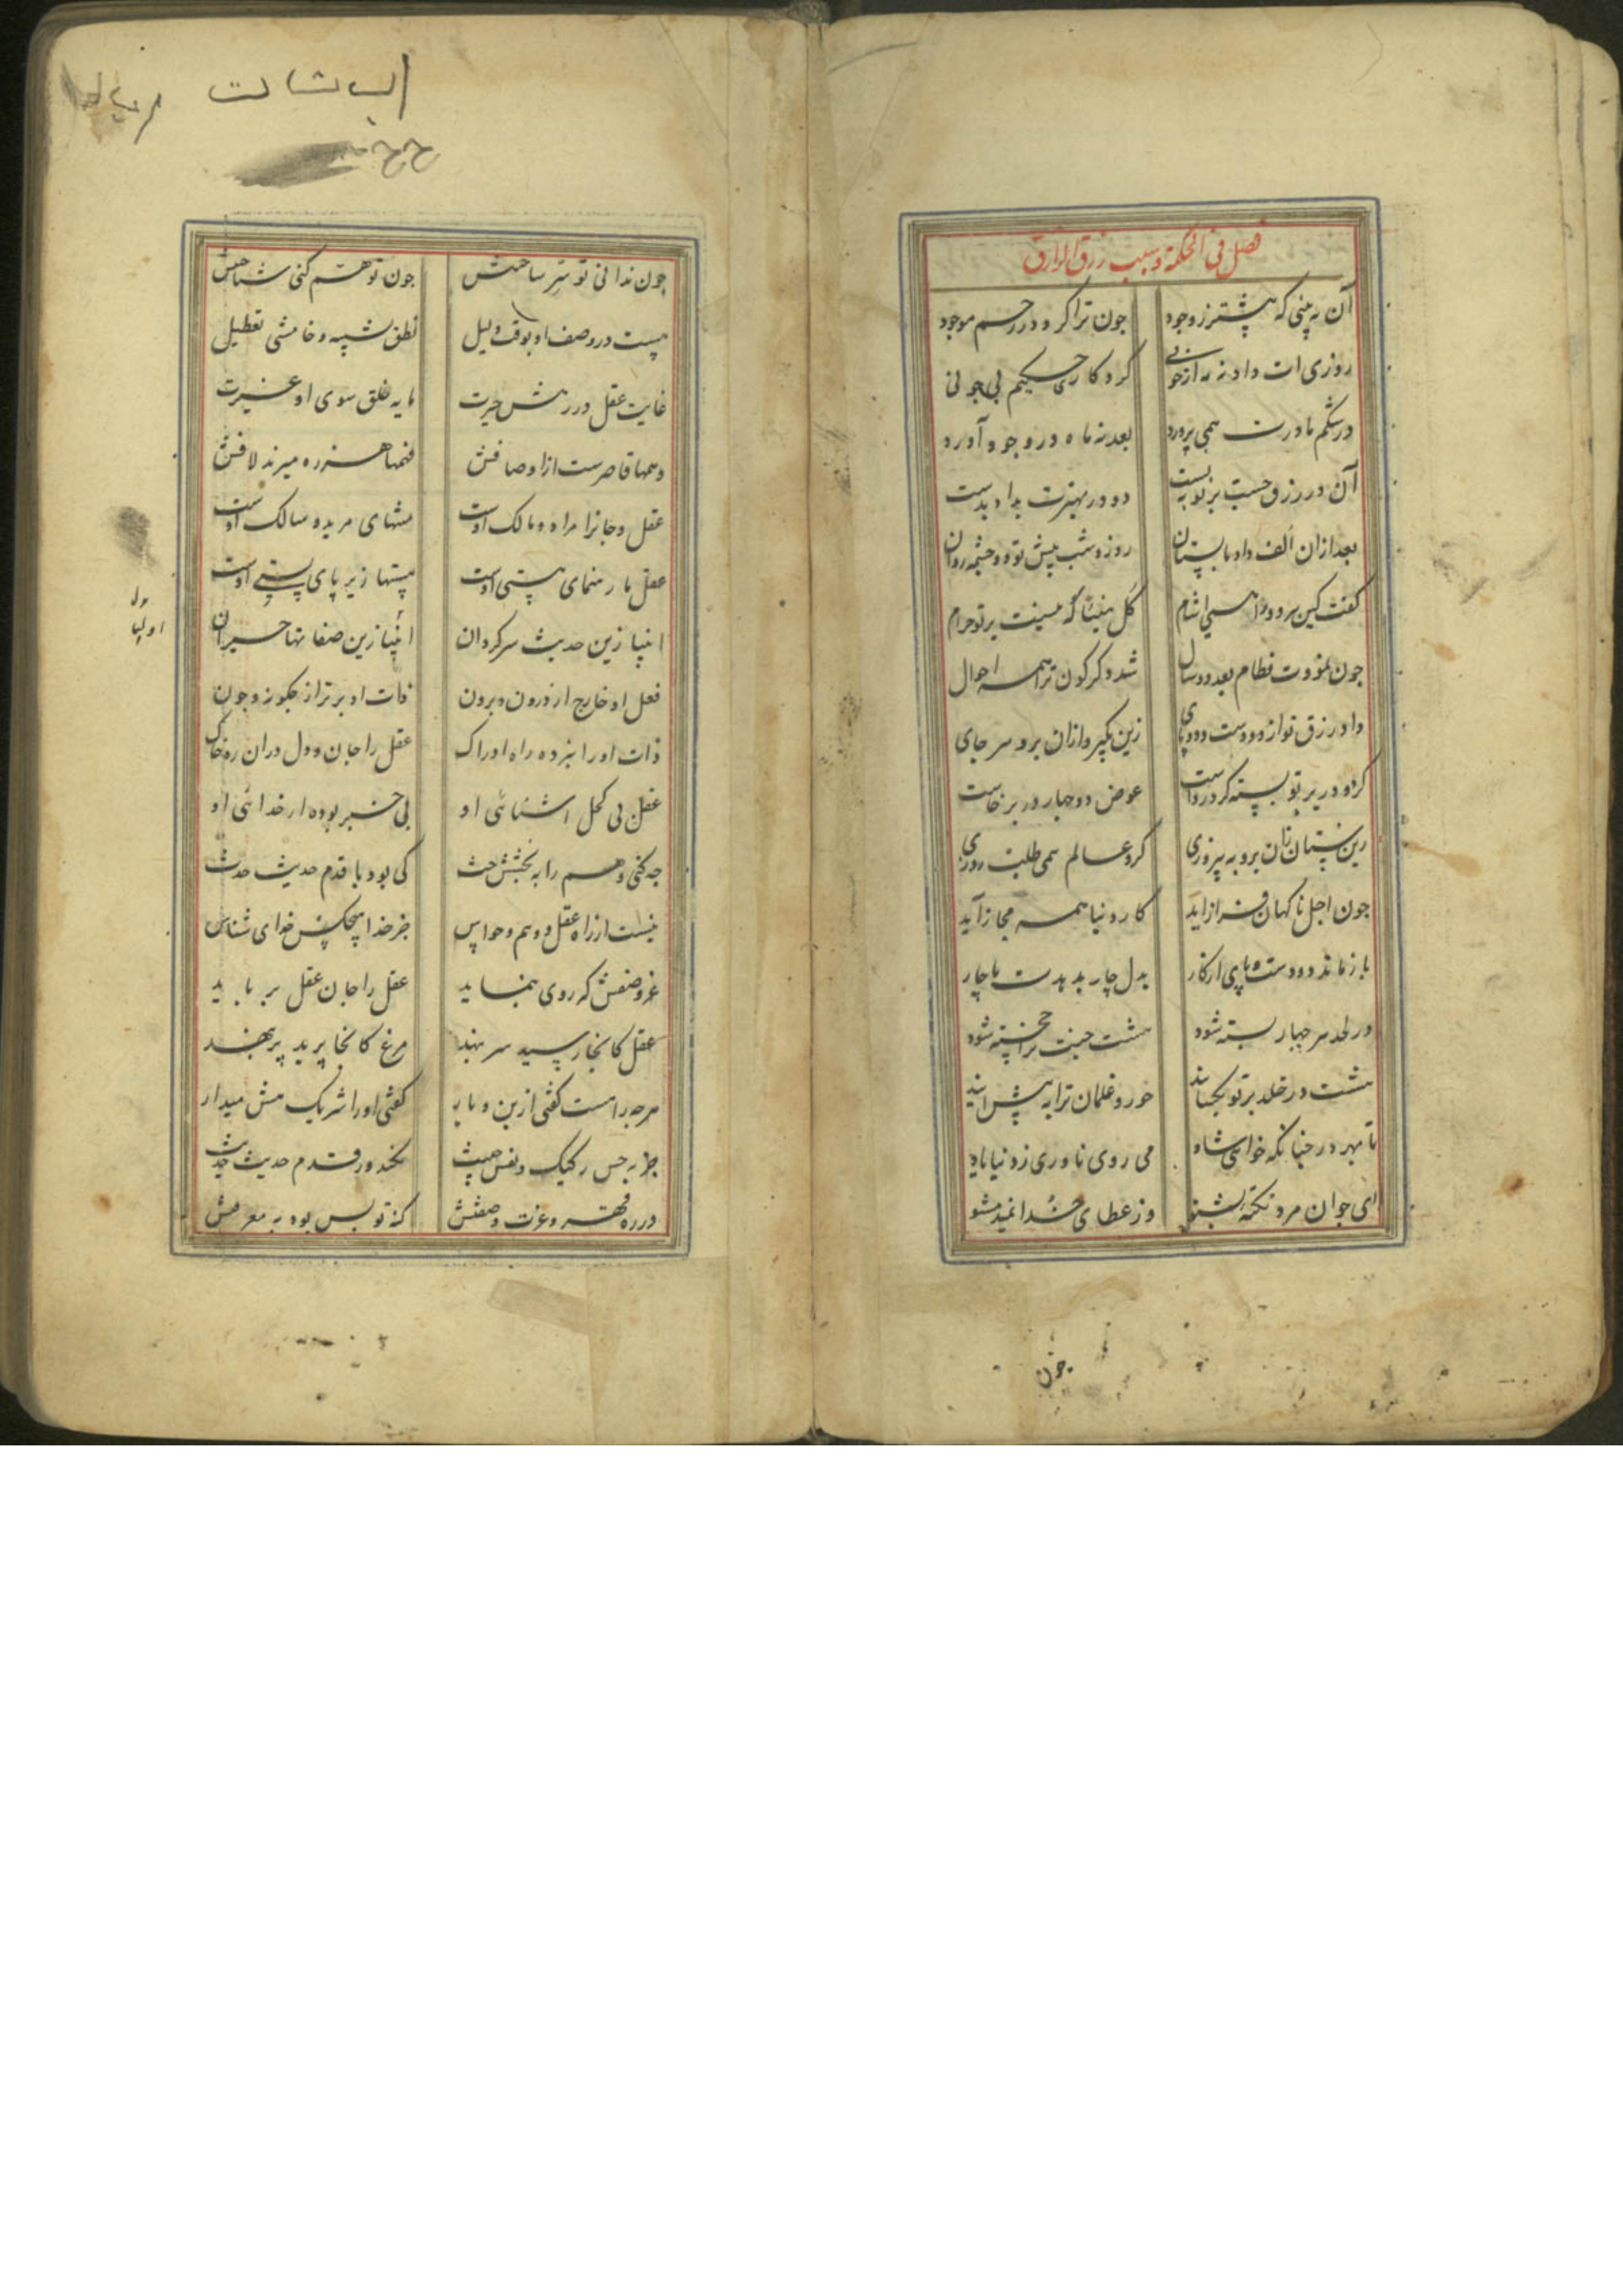 فصل فی الحکمة و سبب رزق الرازق
آن نه بینی که پیشتر ز وجود جون ترا کرد در رحم موجود
روزی ات داد نه مه از خونی کردکار حکیم بی جونی
در شکم مادرت همی پرورد بعد نه ماه در وجود آورد
آن در رزق جست بر تو ببست دو در بهترت بداد بدست
بعد ازان الف داد با پستان روز و شب پیش تو دو جشمه روان
کفت کین هر دو را همی اشام کل هنیئا که نیست بر تو حرام
جون نمودت فطام بعد دو سال شد دکر کون ترا همه احوال
داد رزق تو از دو دست و دو پای زین بکیر و ازان برو هر جای
کر دو در بر تو بسته کرد رواست عوض دو جهار در برخاست
زین ستان زان برو به پیروزی کرد عالم همی طلب روزی
جون اجل ناکهان فراز اید کار دنیا همه مجاز آید
باز ماند دو دست و پای از کار بدل چار بدهدت ناچار
در لحد هر جهار بسته شود هشت جنت ترا خجسته شود
هشت در خلد بر تو بکشایند حور و غلمان ترا به پیش ایند
تا بهر در جنانکه خواهی شاد می روی ناوری ز دنیا یاد
ای جوان مرد نکته بشنو وز عطای خدا نمید مشو
جون
چون ندانی تو سر ساختش جون توهم کنی شناختش
هست در وصف او بوقت دلیل نطق تشبیه و خامشی تعطیل
غایت عقل در رهش حیرت مایه خلق سوی او غیرت
وهمها قاصرست از اوصافش فهمها هرزه میزند لافش
عقل و جانرا مراد و مالک اوست منتهای مرید و سالک اوست
عقل ما رهنمای هستی اوست هستها زیر پای هستی اوست
انبیا زین حدیث سرکردان انبیا زین صفاتها حیران
اولیا
فعل او خارج از درون و برون ذات او برتر از جکونه و جون
ذات او را نبرده راه ادراک عقل را جان و دل دران ره خاک
عقل بی کحل اشنائی او بی خبر بوده از خدائی او
جه کنی وهم را به بخشش حث کی بود با قدم حدیث حدث
نیست از راه عقل و وهم و حواس جز خدا هیچکس خدای شناس
عز وصفش که روی بنماید عقل را جان عقل برباید
عقل کانجا رسید سر بنهد مرغ کانجا پرید پر بنهد
هرجه را هست کفتی از بن و بار کفتی او را شریک هش میدار
جز به حس رکیک و نفس خبیث نکند در قدم حدیث حدیث
در ره قهر و عزت وصفش کنه تو بس بود به معرفتش